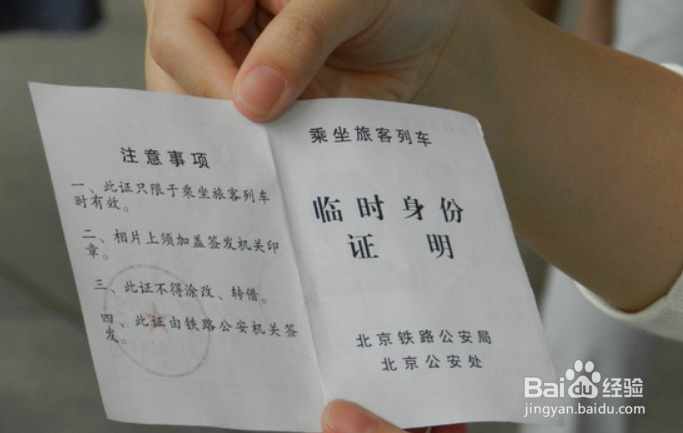 注意事项
一、此证只限于乘坐旅客列车
时有效。
二、相片上须加盖签发机关印
章。
三、此证不得涂改、转借。
四、此证由铁路公安机关签
发。
乘坐旅客列车
临时身份
证明
北京铁路公安局
北京公安处
Bai百度经验
jingyan.baidu.com